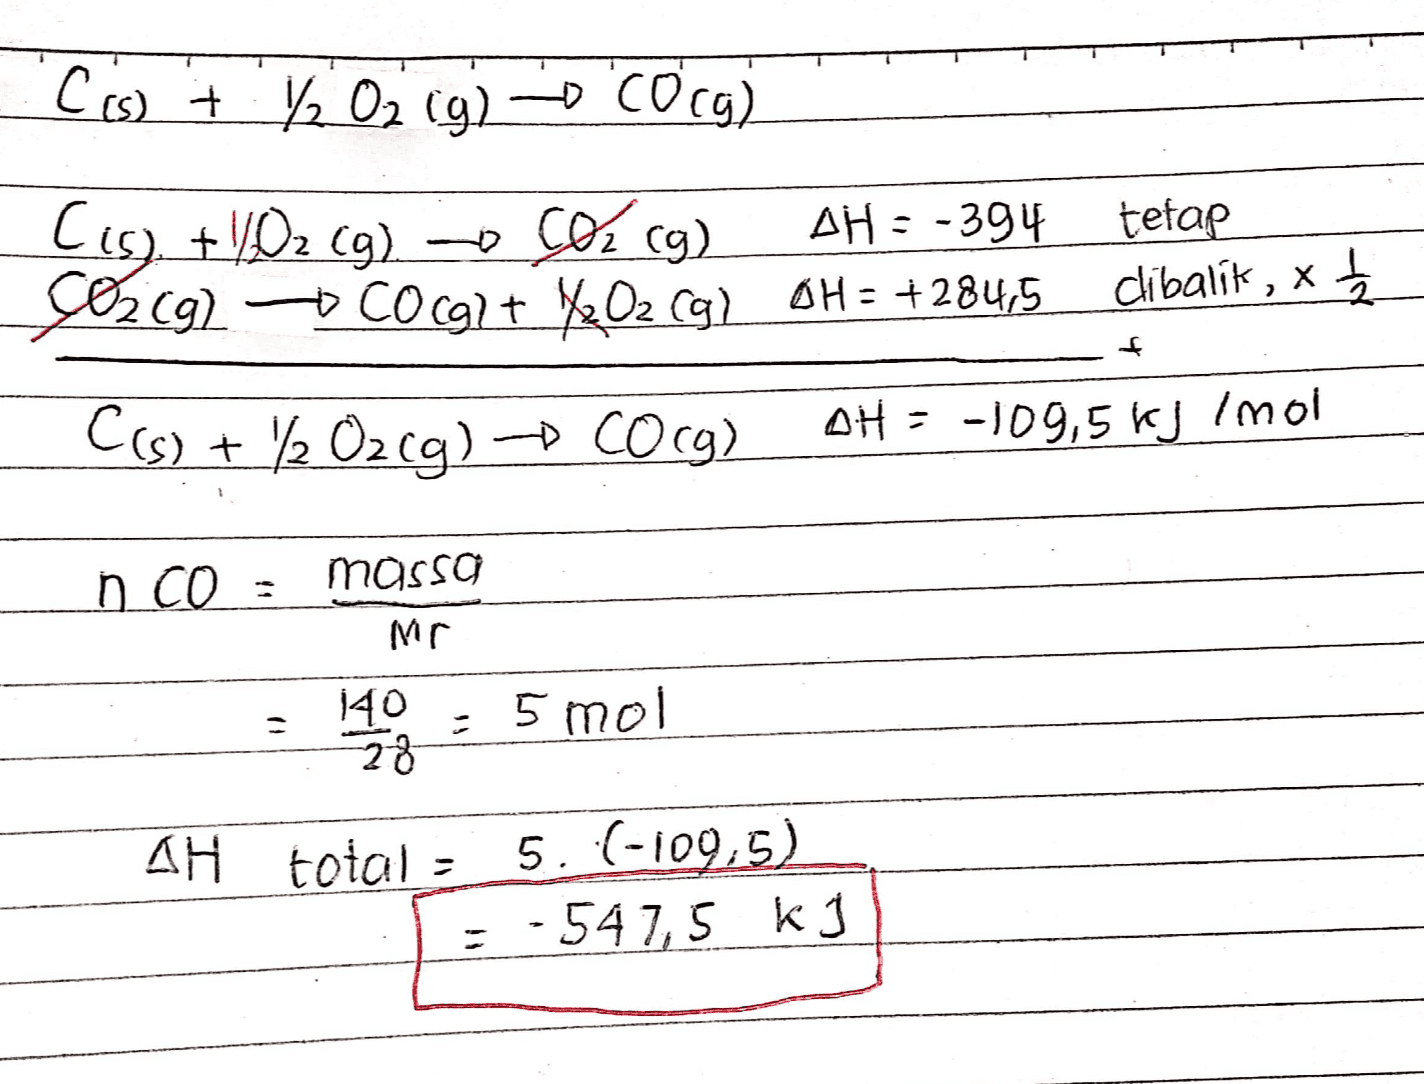 C(s) + ½ O₂ (g) → CO(g)
C(s) + ½O₂ (g) → CO₂ (g) ΔH = -394 tetap
CO₂(g) → CO(g) + ½O₂ (g) ΔH = +284,5 dibalik, x ½
+
C(s) + ½ O₂(g) → CO(g) ΔH = -109,5 kJ /mol
n CO = massa
Mr
= 140 = 5 mol
28
ΔH total = 5. (-109,5)
= -547,5 kJ